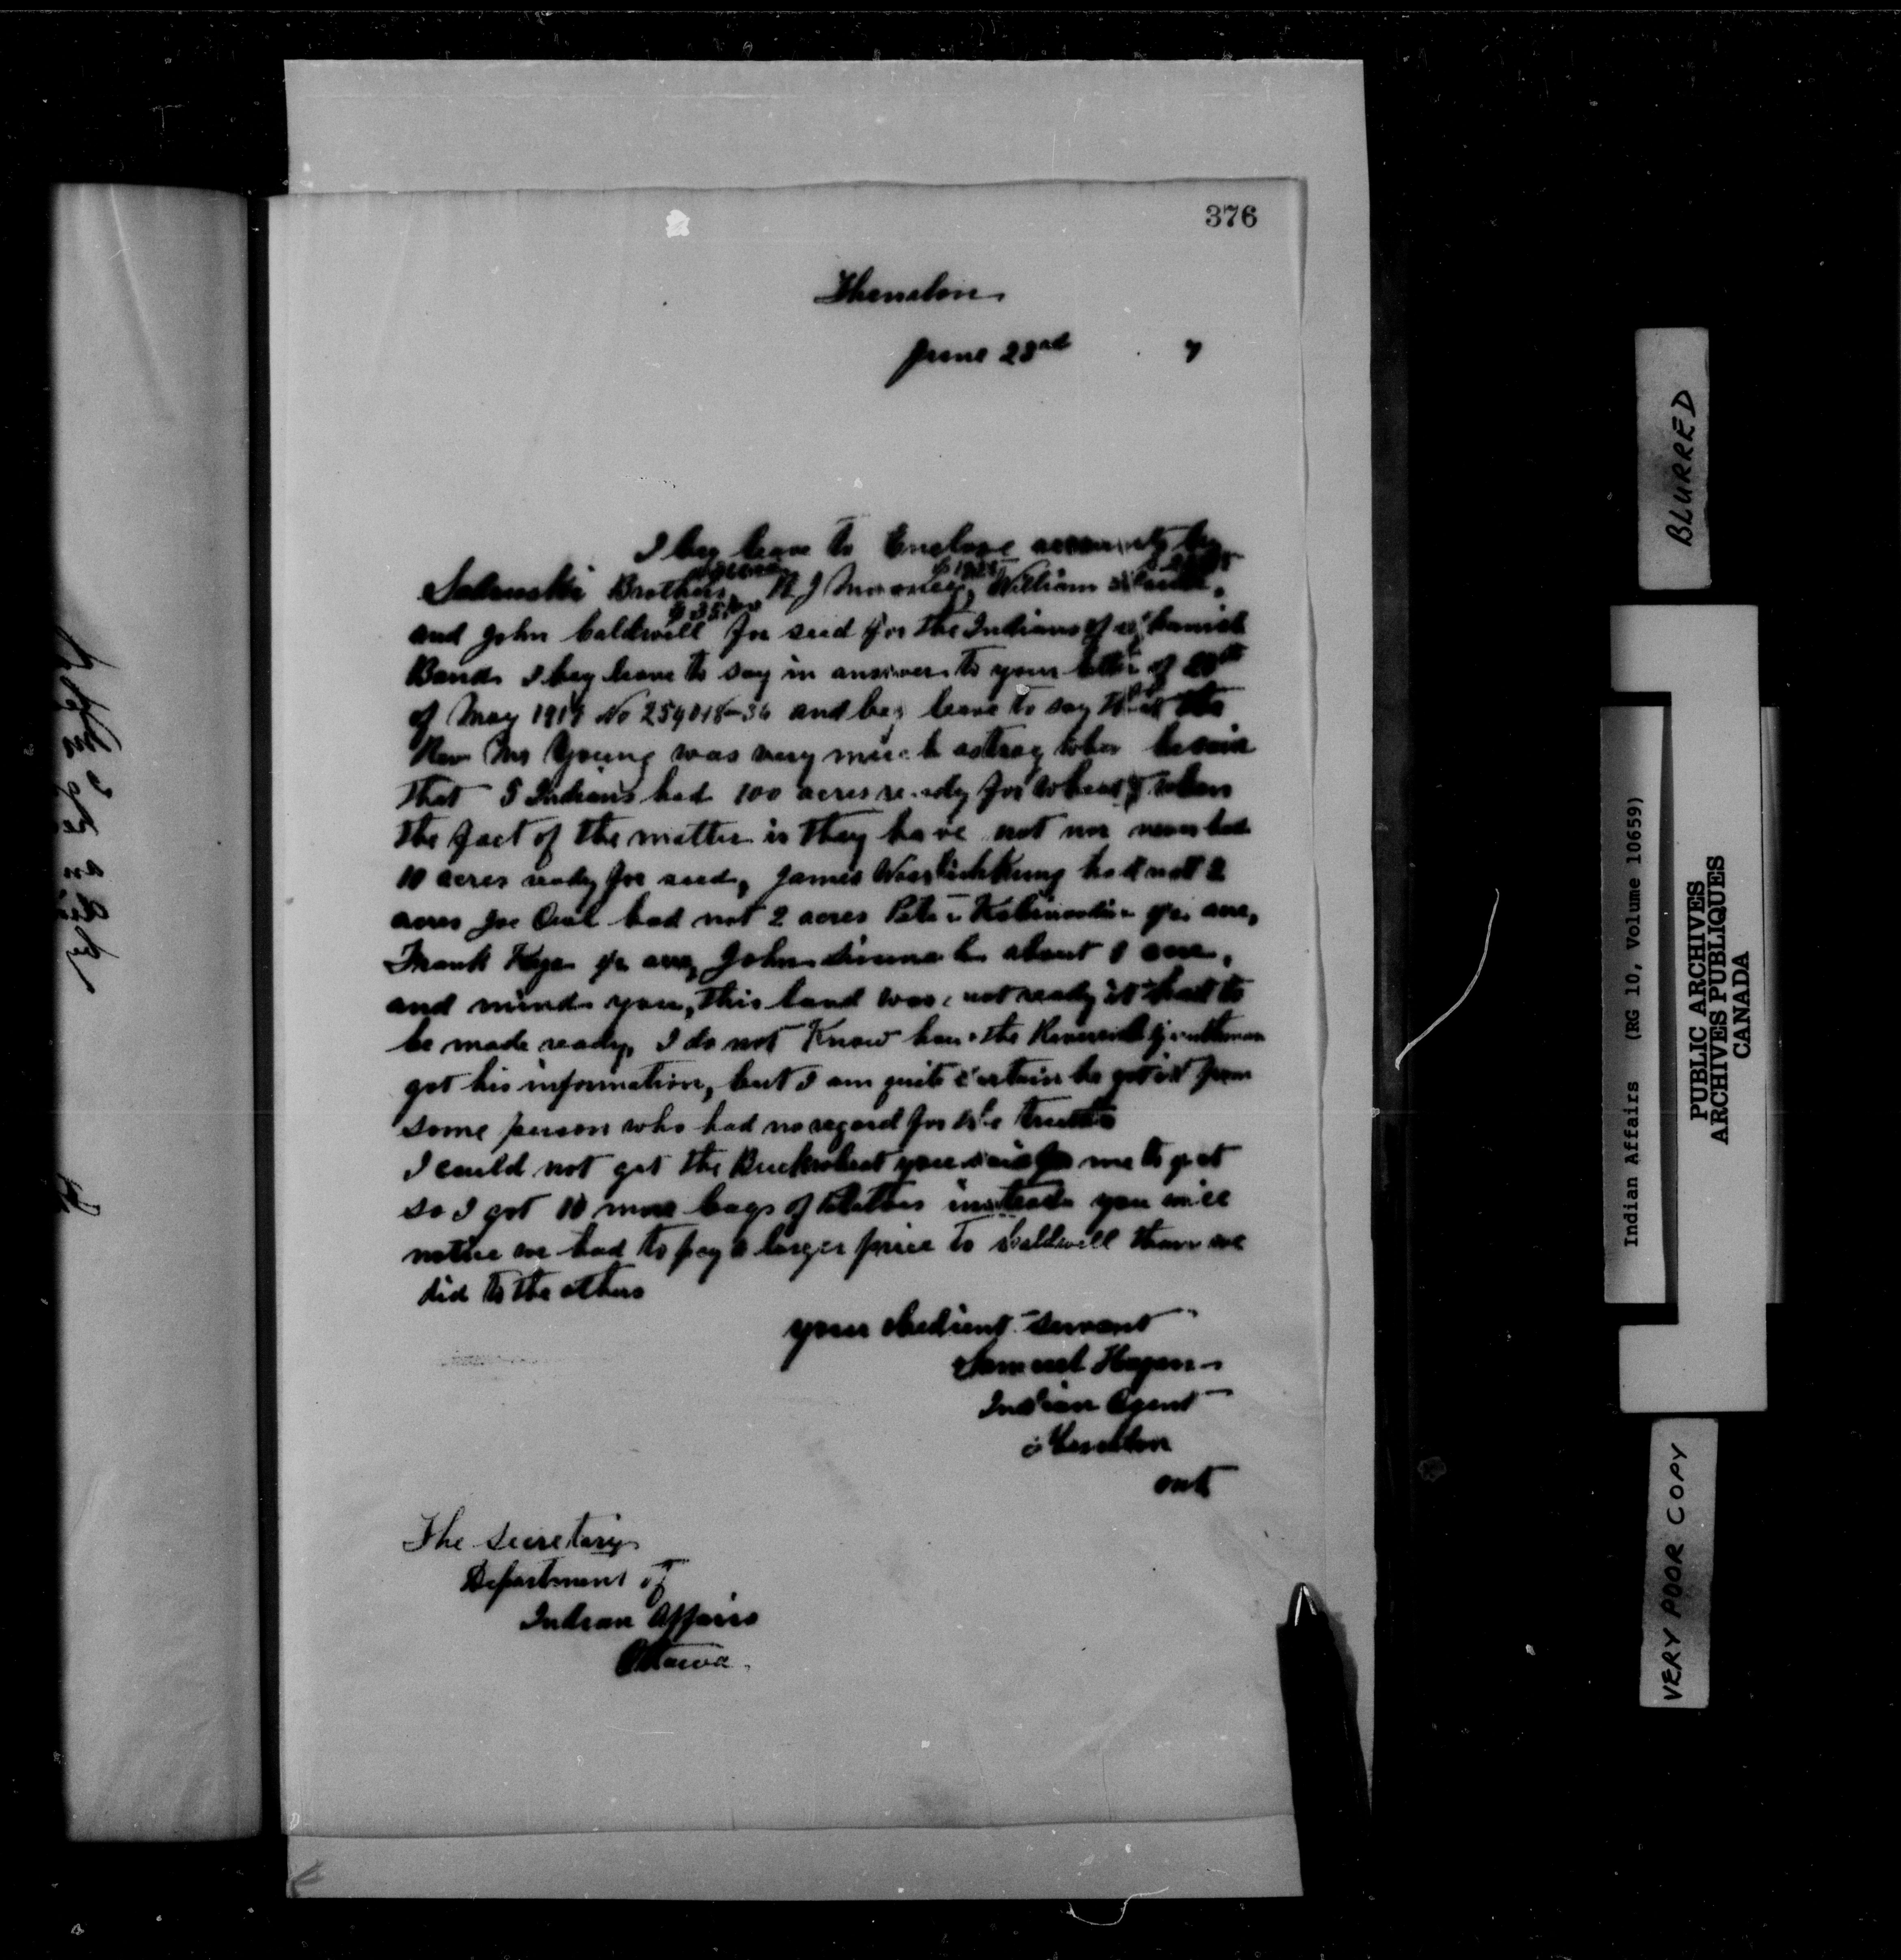 376
Thessalon
June 23rd 7
I beg leave to Enclose accounts by
Brothers William
and John Caldwell for seed for the Indians of
Band. I beg leave to say in answer to your letter of
of May 1917 No and beg leave to say that the
Rev Mr Young was very much astray when he said
that 5 Indians had 100 acres ready for wheat, when
the fact of the matter is they have not nor never had
10 acres ready for seed, James had not 2
acres Joe had not 2 acres Peter acre,
Frank acre, John about 1 acre,
and mind you, this land was not ready it had to
be made ready, I do not Know how the Reverend Gentleman
got his information, but I am quite certain he got it from
some person who had no regard for the truth
I could not get the Buckwheat you me to get
so I got 10 more bags of instead you will
notice we had to pay a larger price to Caldwell than we
did to the others
your obedient servant
Samuel Hagan
Indian Agent
Thessalon
Ont
The Secretary
Department of
Indian Affairs
Ottawa.
BLURRED
Indian Affairs (RG 10, Volume 10659)
PUBLIC ARCHIVES
ARCHIVES PUBLIQUES
CANADA
VERY POOR COPY